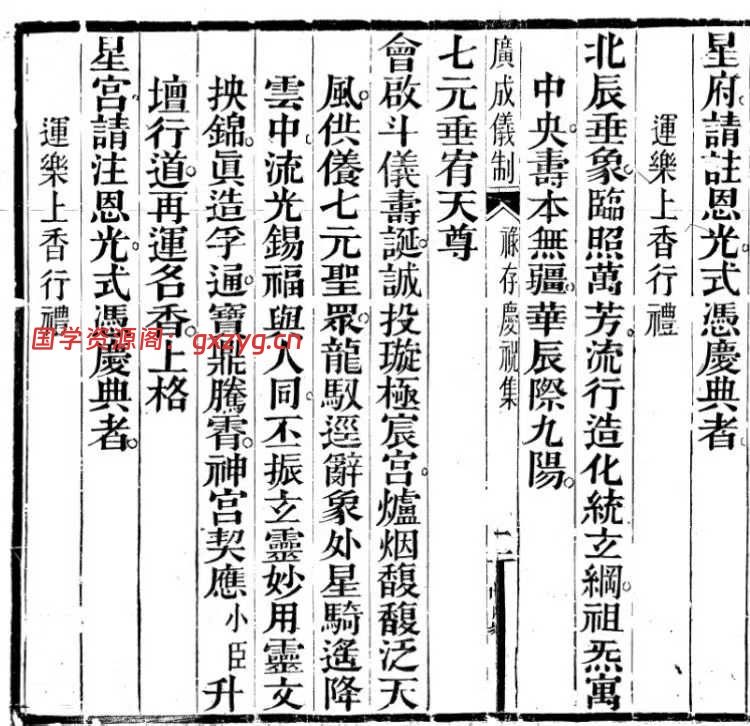 星府。請註恩光。式憑慶典者
運樂上香行禮
北辰垂象。臨照萬芳。流行造化統立綱。祖炁寓
中央。壽本無疆。華辰際九陽。
廣成儀制 祿存慶祝集 二
七元垂宥天尊
會啟斗儀壽誕。誠投璇極宸宮。爐烟馥馥泛天
風。供儀七元聖眾。龍馭逕辭象外星騎遙降
雲中。流光錫福與人同。丕振玄靈妙用靈文
抉錦。眞造孚通。寶鼎騰霄。神宮契應小臣升
壇行道。再運名香。上格
星宮。請注恩光。式憑慶典者。
運樂上香行禮
国学资源阁：gxzyg.cn